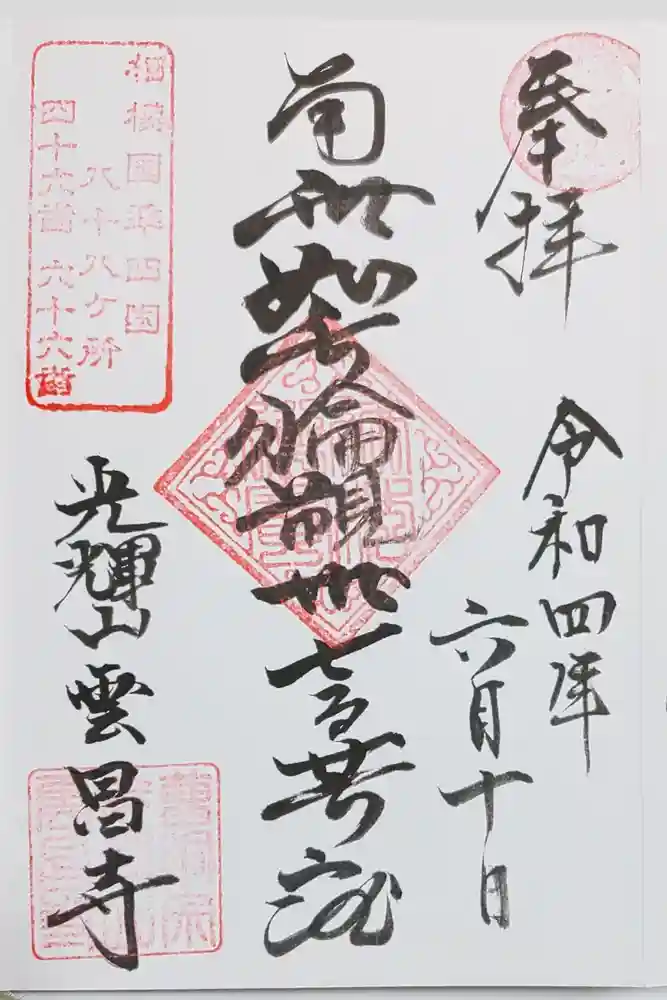 奉拝
令和四年
六月十日
南無如意輪観世音菩薩
相模国準四国
八十八ヶ所
四十六番 六十六番
光輝山雲昌寺